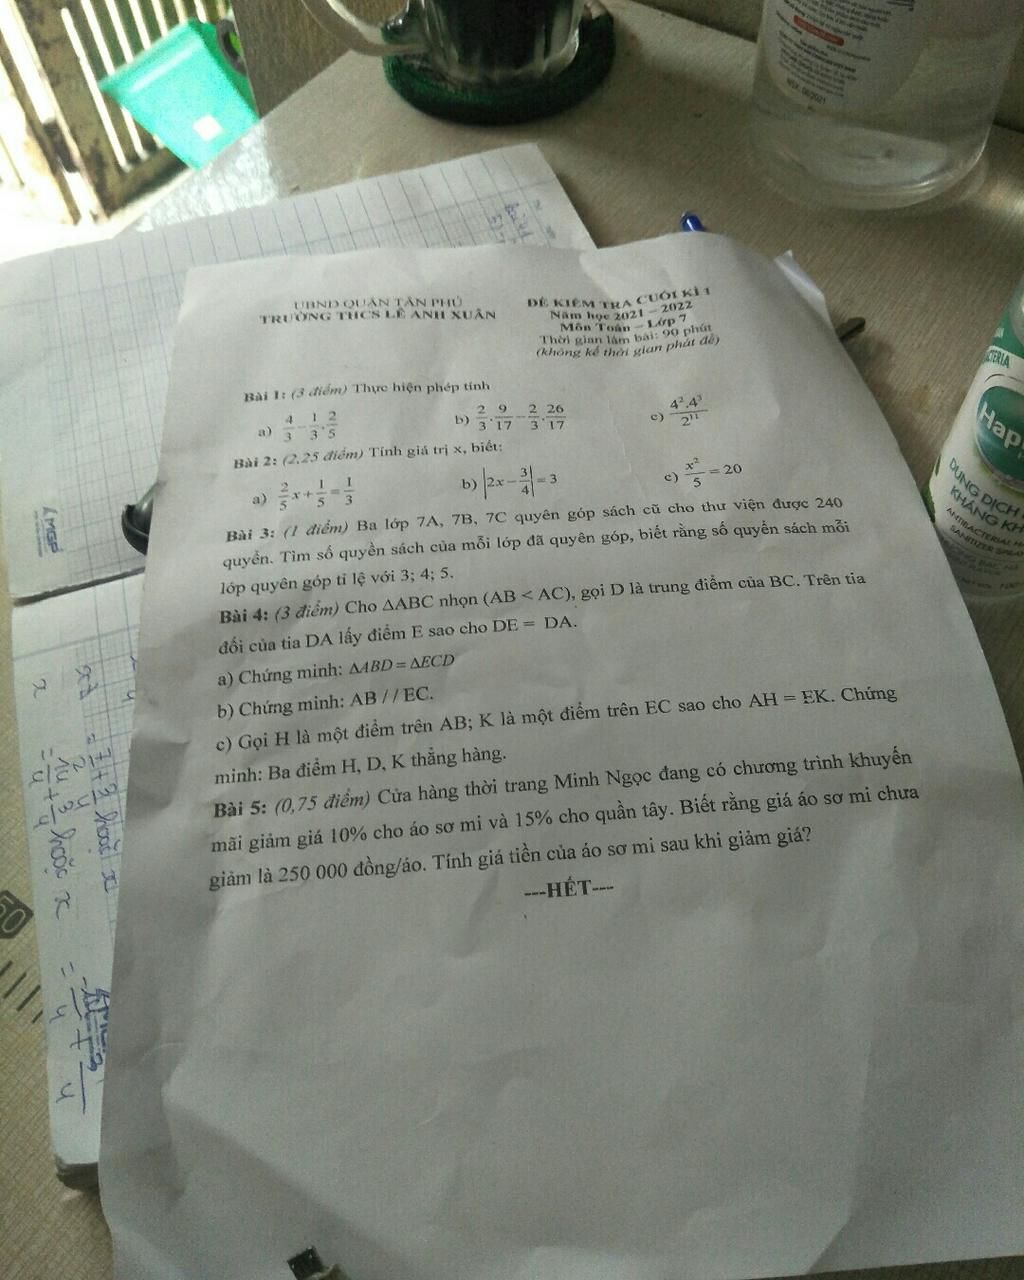 UBND QUẬN TÂN PHÚ
TRƯỜNG THCS LÊ ANH XUÂN
ĐỀ KIỂM TRA CUỐI KÌ 1
Năm học 2021 – 2022
Môn Toán – Lớp 7
Thời gian làm bài: 90 phút
(không kể thời gian phát đề)
Bài 1: (3 điểm) Thực hiện phép tính
a) 4/3 − 1/3 . 2/5 b) 2/3 . 9/17 − 2/3 . 26/17 c) 4².4³/2¹¹
Bài 2: (2,25 điểm) Tính giá trị x, biết:
a) 2/5 x + 1/5 = 1/3 b) |2x − 3/4| = 3 c) x²/5 = 20
Bài 3: (1 điểm) Ba lớp 7A, 7B, 7C quyên góp sách cũ cho thư viện được 240
quyển. Tìm số quyển sách của mỗi lớp đã quyên góp, biết rằng số quyển sách mỗi
lớp quyên góp tỉ lệ với 3; 4; 5.
Bài 4: (3 điểm) Cho ΔABC nhọn (AB < AC), gọi D là trung điểm của BC. Trên tia
đối của tia DA lấy điểm E sao cho DE = DA.
a) Chứng minh: ΔABD = ΔECD
b) Chứng minh: AB // EC.
c) Gọi H là một điểm trên AB; K là một điểm trên EC sao cho AH = EK. Chứng
minh: Ba điểm H, D, K thẳng hàng.
Bài 5: (0,75 điểm) Cửa hàng thời trang Minh Ngọc đang có chương trình khuyến
mãi giảm giá 10% cho áo sơ mi và 15% cho quần tây. Biết rằng giá áo sơ mi chưa
giảm là 250 000 đồng/áo. Tính giá tiền của áo sơ mi sau khi giảm giá?
---HẾT---
MGP
Happ
DUNG DỊCH
KHÁNG KH
ANTIBACTERIAL
SANITIZER SPRA
50